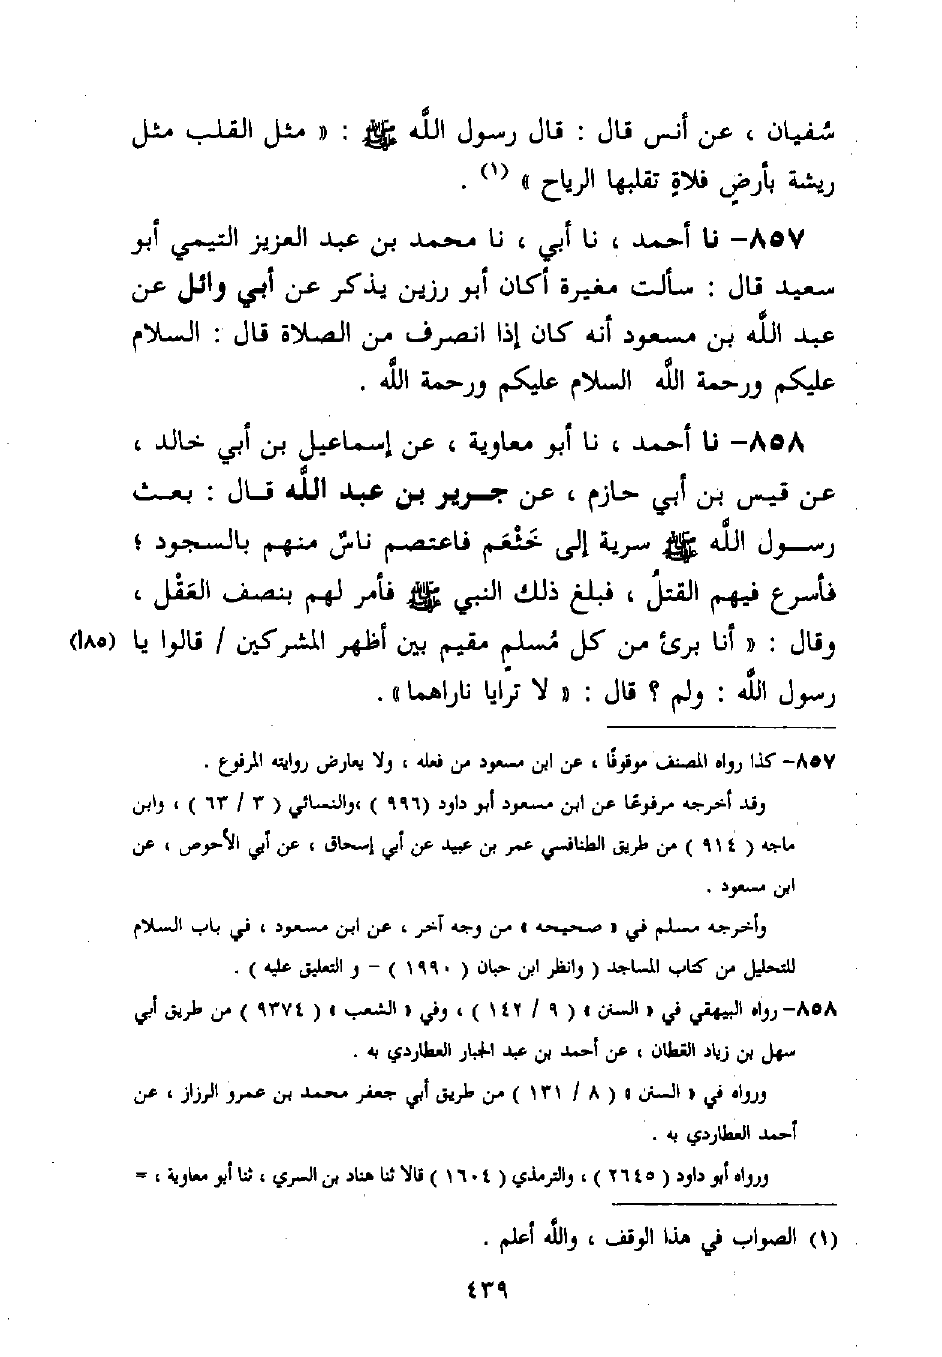 سُفيان ، عن أنس قال : قال رسول اللَّه ﷺ : « مثل القلب مثل
ريشة بأرضٍ فلاةٍ تقلبها الرياح » (١) .
٨٥٧- نا أحمد ، نا أبي ، نا محمد بن عبد العزيز التيمي أبو
سعيد قال : سألت مغيرة أكان أبو رزين يذكر عن أبي وائل عن
عبد اللَّه بن مسعود أنه كان إذا انصرف من الصلاة قال : السلام
عليكم ورحمة اللَّه السلام عليكم ورحمة اللَّه .
٨٥٨- نا أحمد ، نا أبو معاوية ، عن إسماعيل بن أبي خالد ،
عن قيس بن أبي حازم ، عن جرير بن عبد اللَّه قال : بعث
رسول اللَّه ﷺ سرية إلى خَثْعَم فاعتصم ناسٌ منهم بالسجود ؛
فأسرع فيهم القتلُ ، فبلغ ذلك النبي ﷺ فأمر لهم بنصف العَقْل ،
وقال : « أنا برئ من كل مُسلمٍ مقيم بين أظهر المشركين / قالوا يا (١٨٥أ)
رسول اللَّه : ولم ؟ قال : « لا ترايا ناراهما» .
٨٥٧- كذا رواه المصنف موقوفًا ، عن ابن مسعود من فعله ، ولا يعارض روايته المرفوع .
وقد أخرجه مرفوعًا عن ابن مسعود أبو داود (٩٩٦ ) ،والنسائي ( ٣ / ٦٣ ) ، وابن
ماجه ( ٩١٤ ) من طريق الطنافسي عمر بن عبيد عن أبي إسحاق ، عن أبي الأحوص ، عن
ابن مسعود .
وأخرجه مسلم في « صحيحه » من وجه آخر ، عن ابن مسعود ، في باب السلام
للتحليل من كتاب المساجد ( وانظر ابن حبان ( ١٩٩٠ ) - و التعليق عليه ) .
٨٥٨- رواه البيهقي في « السنن » ( ٩ / ١٤٢ ) ، وفي « الشعب » ( ٩٣٧٤ ) من طريق أبي
سهل بن زياد القطان ، عن أحمد بن عبد الجبار العطاردي به .
ورواه في « السنن » ( ٨ / ١٣١ ) من طريق أبي جعفر محمد بن عمرو الرزاز ، عن
أحمد العطاردي به .
ورواه أبو داود ( ٢٦٤٥ ) ، والترمذي ( ١٦٠٤ ) قالا ثنا هناد بن السري ، ثنا أبو معاوية ، =
(١) الصواب في هذا الوقف ، واللَّه أعلم .
٤٣٩